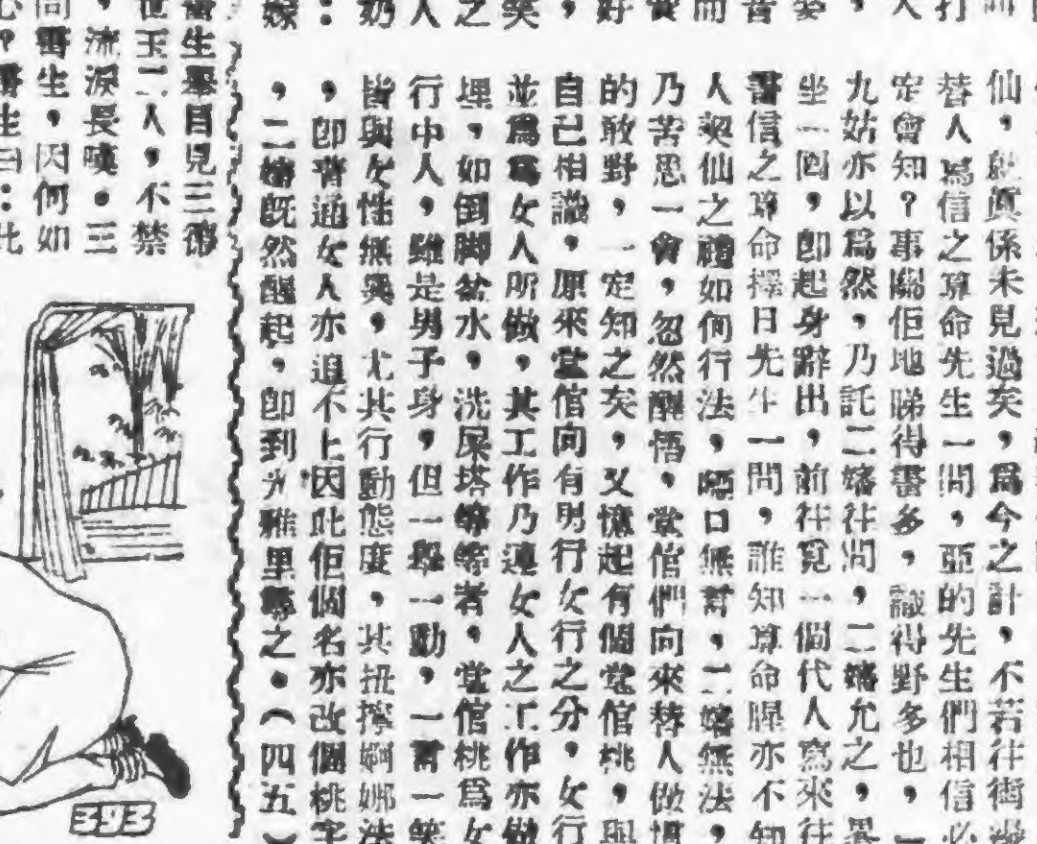 仙，就眞係未見過矣，爲今之計，不若往街邊
替人寫信之算命先生一問，亞的先生們相信必
定會知？事關佢地睇得書多，識得野多也，一
九姑亦以爲然，乃託二嬸往問，二嬸允之，畧
坐一囘，卽起身辭出，前往覓一個代人寫來往
書信之算命擇日先生一問，誰知算命腥亦不知
人契仙之禮如何行法，啞口無言，二嬸無法，
乃苦思一會，忽然醒悟，堂倌們向來替人做慣
的敢野，一定知之矣，又憶起有個堂倌桃，與
自己相識，原來堂倌向有男行女行之分，女行
並爲爲女人所做，其工作乃連女人之工作亦做
埋，如倒脚盆水，洗屎塔等等者，堂倌桃爲女
行中人，雖是男子身，但一舉一動，一言一笑
皆與女性無異，尤其行動態度，其扭擰婀娜法
，卽普通女人亦追不上因此佢個名亦改個桃字
，二嬸旣然醒起，卽到光雅里尋之。（四五）
書生舉目見三德
世玉二人，不禁
流淚長嘆。三
問書生，因何如
心？書生曰：此
393